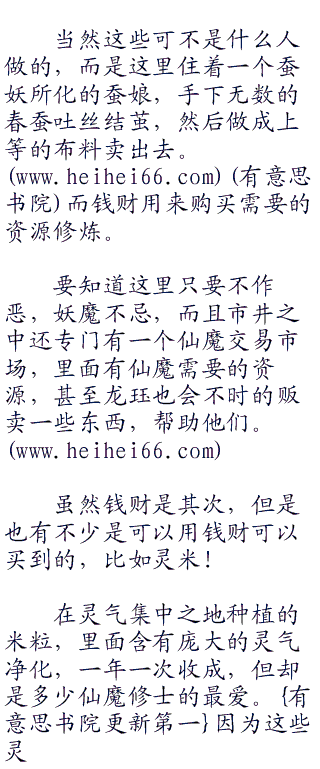 当然这些可不是什么人
做的，而是这里住着一个蚕
妖所化的蚕娘，手下无数的
春蚕吐丝结茧，然后做成上
等的布料卖出去。
(www.heihei66.com)(有意思
书院)而钱财用来购买需要的
资源修炼。
要知道这里只要不作
恶，妖魔不忌，而且市井之
中还专门有一个仙魔交易市
场，里面有仙魔需要的资
源，甚至龙珏也会不时的贩
卖一些东西，帮助他们。
(www.heihei66.com)
虽然钱财是其次，但是
也有不少是可以用钱财可以
买到的，比如灵米！
在灵气集中之地种植的
米粒，里面含有庞大的灵气
净化，一年一次收成，但却
是多少仙魔修士的最爱。{有
意思书院更新第一}因为这些
灵